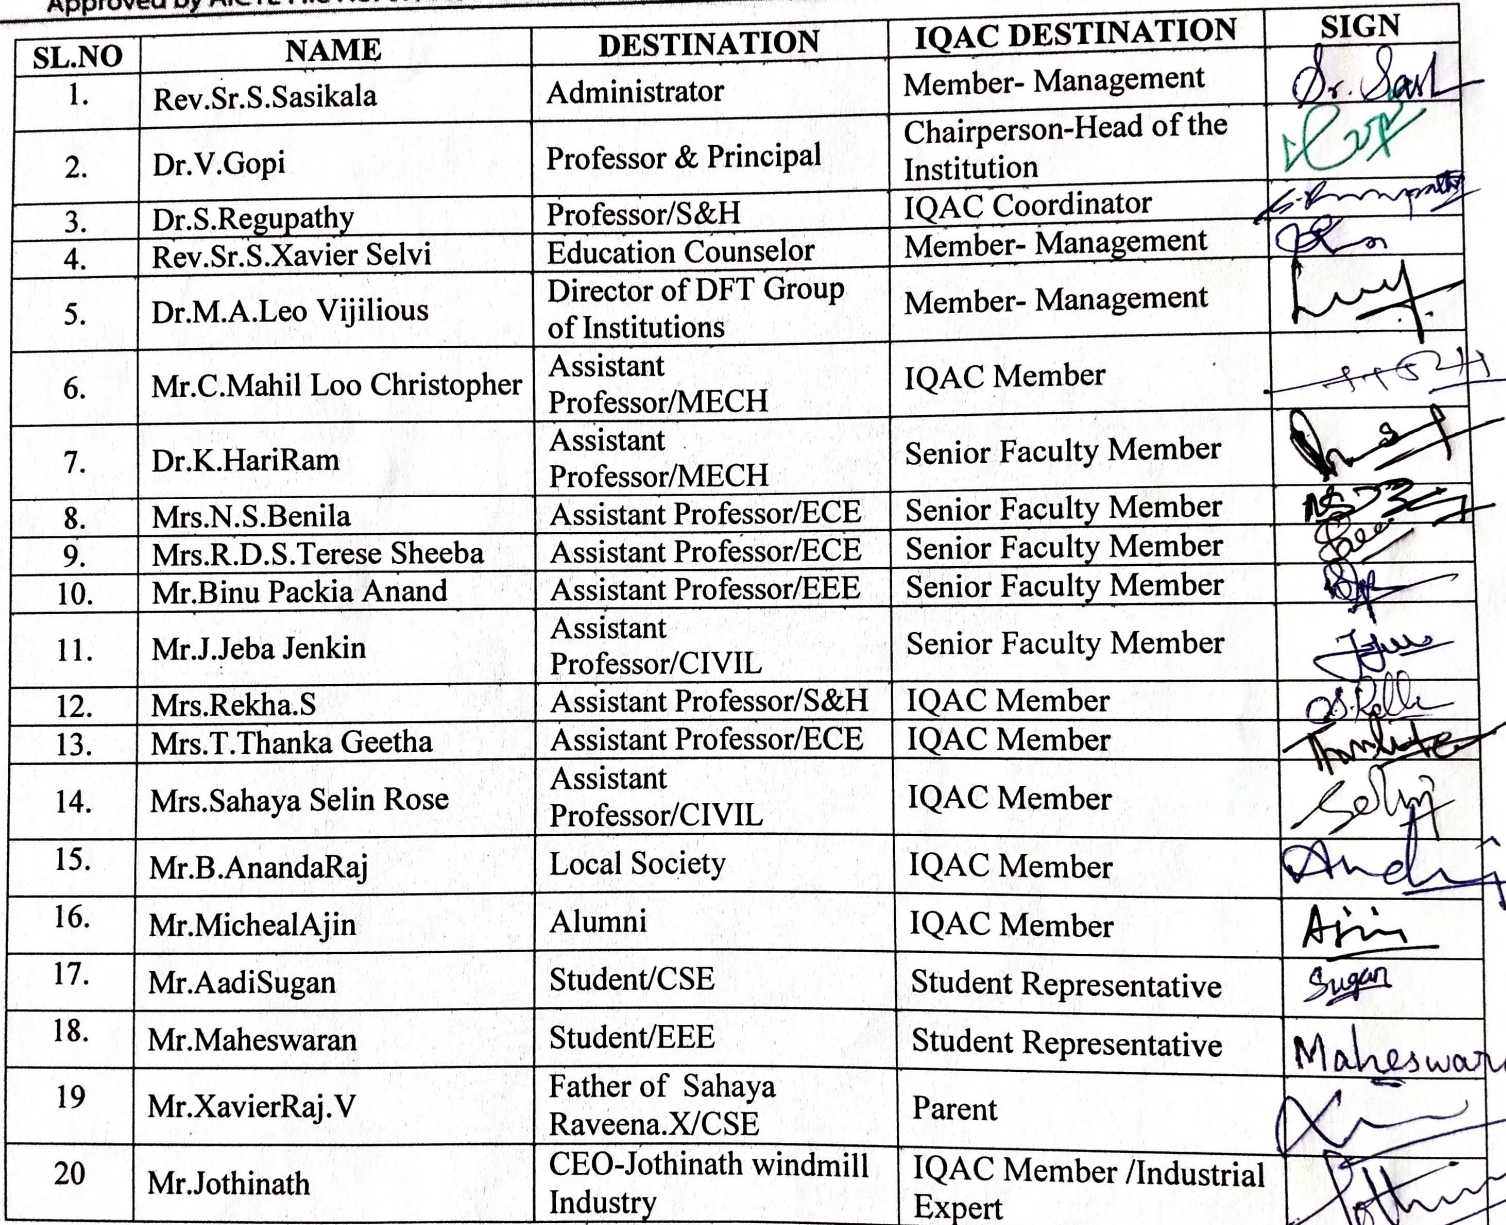 Approved by AICTE
SL.NO NAME DESTINATION IQAC DESTINATION SIGN
1. Rev.Sr.S.Sasikala Administrator Member- Management Sr. Sasi
2. Dr.V.Gopi Professor & Principal Chairperson-Head of the
Institution
3. Dr.S.Regupathy Professor/S&H IQAC Coordinator
4. Rev.Sr.S.Xavier Selvi Education Counselor Member- Management
5. Dr.M.A.Leo Vijilious Director of DFT Group
of Institutions Member- Management
6. Mr.C.Mahil Loo Christopher Assistant
Professor/MECH IQAC Member
7. Dr.K.HariRam Assistant
Professor/MECH Senior Faculty Member
8. Mrs.N.S.Benila Assistant Professor/ECE Senior Faculty Member
9. Mrs.R.D.S.Terese Sheeba Assistant Professor/ECE Senior Faculty Member
10. Mr.Binu Packia Anand Assistant Professor/EEE Senior Faculty Member
11. Mr.J.Jeba Jenkin Assistant
Professor/CIVIL Senior Faculty Member
12. Mrs.Rekha.S Assistant Professor/S&H IQAC Member
13. Mrs.T.Thanka Geetha Assistant Professor/ECE IQAC Member
14. Mrs.Sahaya Selin Rose Assistant
Professor/CIVIL IQAC Member
15. Mr.B.AnandaRaj Local Society IQAC Member
16. Mr.MichealAjin Alumni IQAC Member Ajin
17. Mr.AadiSugan Student/CSE Student Representative Sugan
18. Mr.Maheswaran Student/EEE Student Representative Maheswar
19 Mr.XavierRaj.V Father of Sahaya
Raveena.X/CSE Parent
20 Mr.Jothinath CEO-Jothinath windmill
Industry IQAC Member /Industrial
Expert